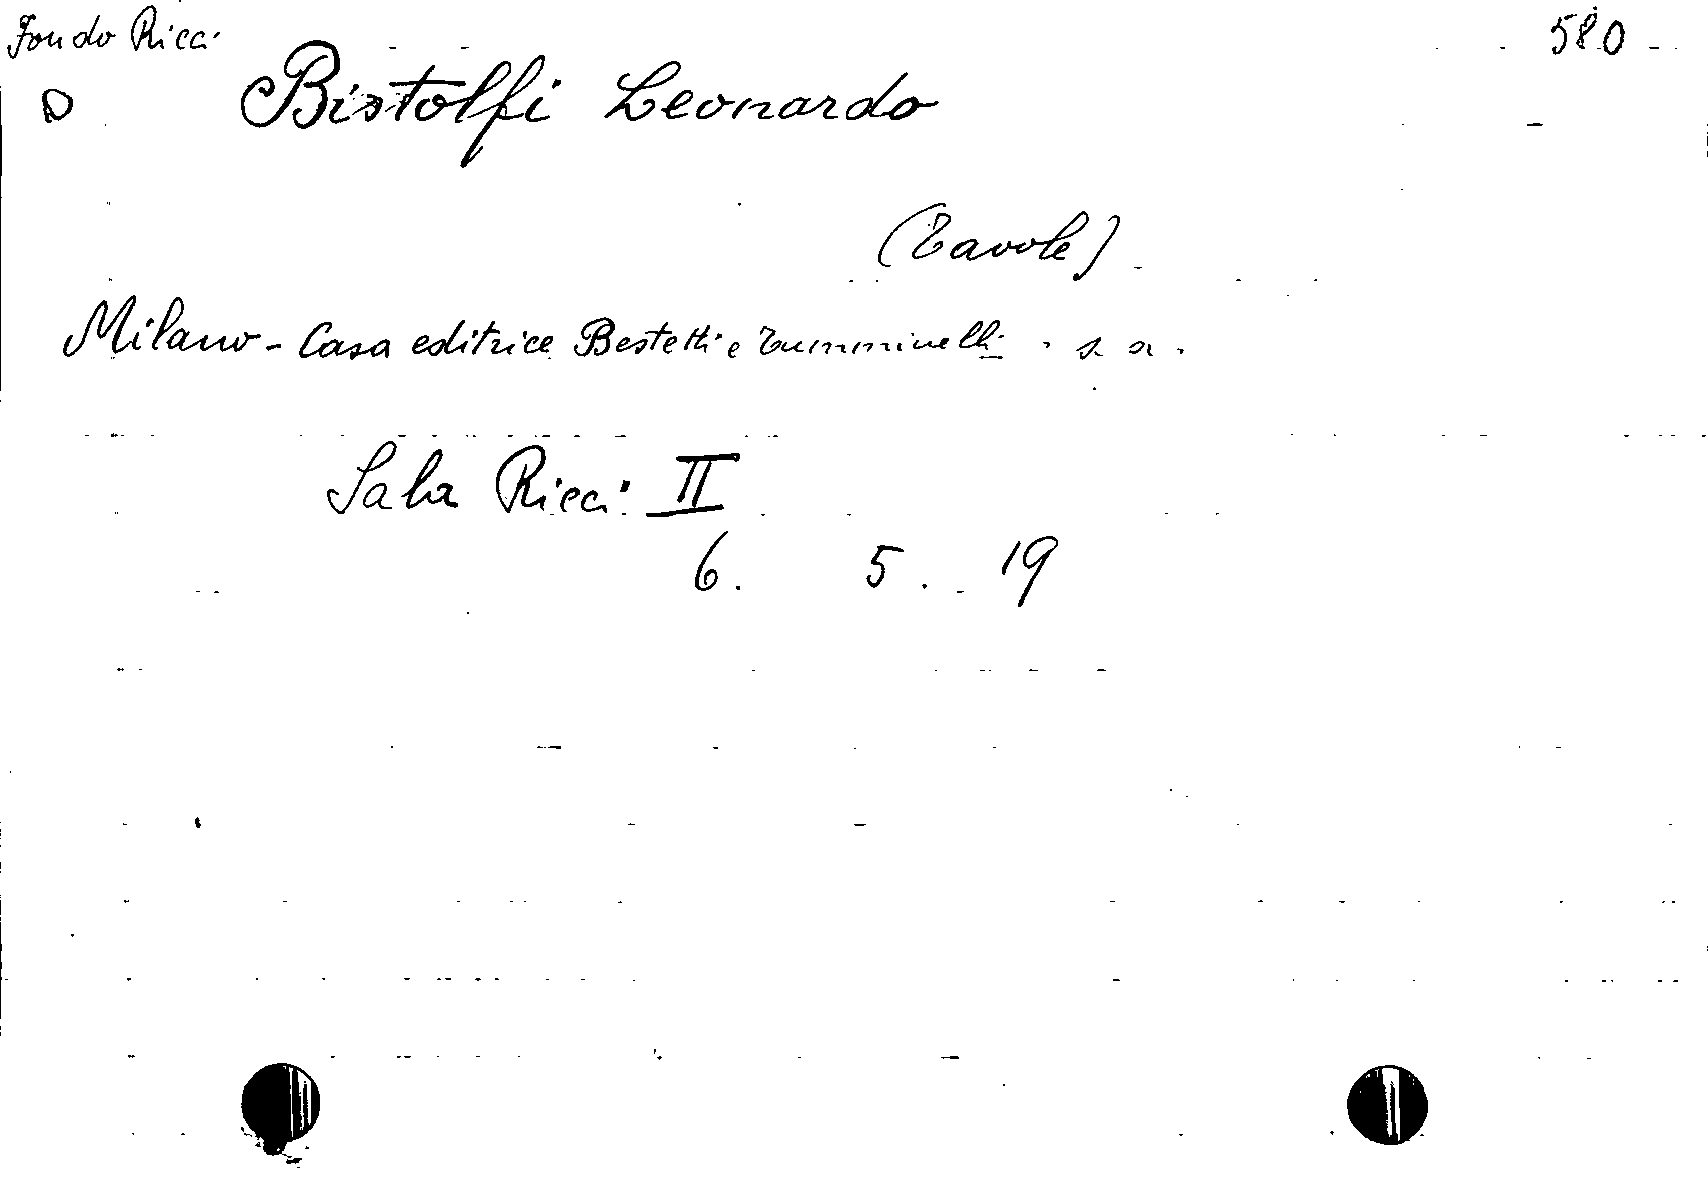 Fondo Ricci 580
D Bistolfi Leonardo
(Tavole)
Milano - Casa editrice Bestetti e Tumminelli . s. a.
Sala Ricci II
6. 5. 19